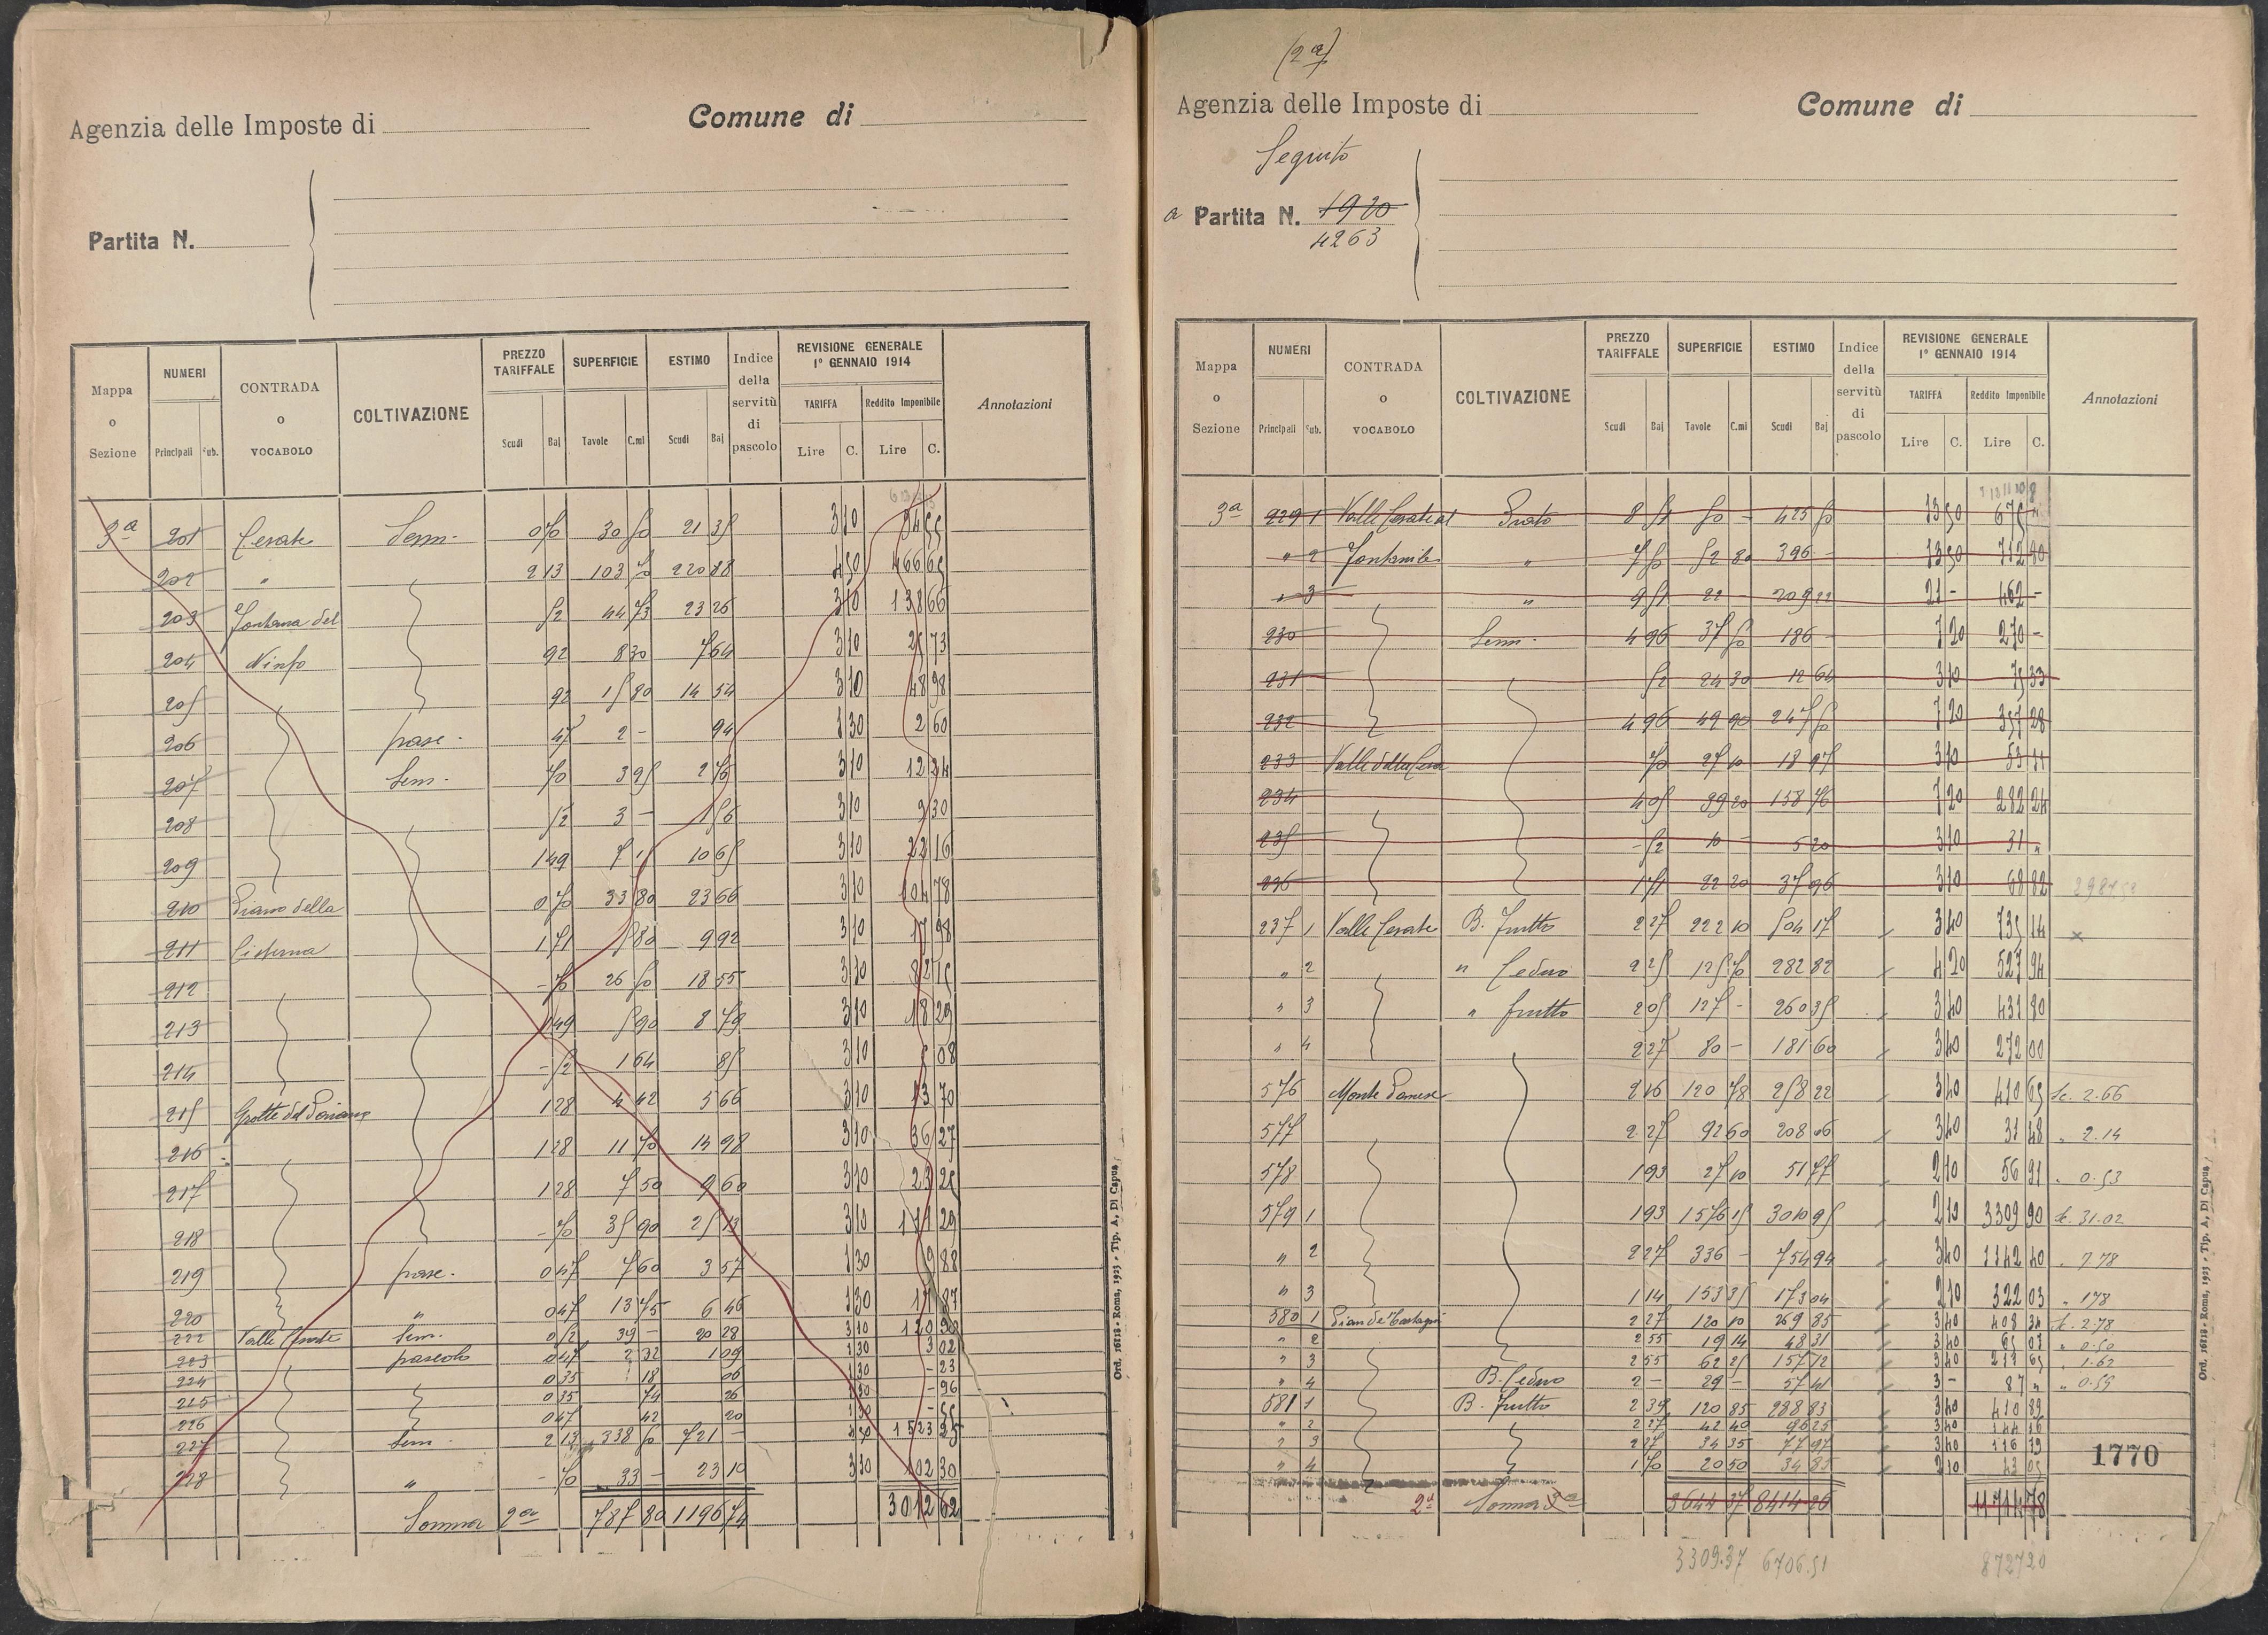 Agenzia delle Imposte di Comune di
Partita N.
Mappa o Sezione NUMERI Principali Sub. CONTRADA o VOCABOLO COLTIVAZIONE PREZZO TARIFFALE Scudi Baj SUPERFICIE Tavole C.mi ESTIMO Scudi Baj Indice della servitù di pascolo REVISIONE GENERALE 1° GENNAIO 1914 TARIFFA Lire C. Reddito Imponibile Lire C. Annotazioni
3a 201 Cerate Sem. 0 70 30 50 21 35 3 10 94 55
202 " 2 13 103 70 220 88 4 50 466 65
203 Fontana del 52 44 73 23 26 3 10 138 66
204 Ninfo 92 8 30 7 64 3 10 25 73
205 92 15 80 14 54 3 10 48 98
206 pasc. 47 2 - 94 1 30 2 60
207 Sem. 70 3 95 2 76 3 10 12 24
208 52 3 - 1 56 3 10 9 30
209 1 49 7 15 10 65 3 10 22 16
210 Piano della 0 70 33 80 23 66 3 10 104 78
211 Cisterna 1 71 5 80 9 92 3 10 17 98
212 - 70 26 50 18 55 3 10 82 15
213 1 49 5 90 8 79 3 10 18 29
214 - 52 1 64 85 3 10 5 08
215 1 28 4 42 5 66 3 10 13 70
216 1 28 11 70 14 98 3 10 36 27
217 1 28 7 50 9 60 3 10 23 25
218 - 70 35 90 25 13 3 10 111 29
219 pasc. 0 47 7 60 3 57 1 30 9 88
220 " 0 47 13 75 6 46 1 30 17 87
222 Valle Cerate Sem. 0 52 39 - 20 28 3 10 120 90
223 pascolo 0 47 2 32 1 09 1 30 3 02
224 0 35 18 06 1 30 - 23
225 0 35 74 26 1 30 - 96
226 0 47 42 20 1 30 - 55
227 Sem. 2 13 338 50 721 - 4 50 1523 25
228 " - 70 33 - 23 10 3 10 102 30
Somma 2a 787 80 1196 74 3012 62
Ord. 16818 - Roma, 1923 - Tip. A. Di Capua
(2a)
Agenzia delle Imposte di Comune di
Seguito
a Partita N. 1920
4263
Mappa o Sezione NUMERI Principali Sub. CONTRADA o VOCABOLO COLTIVAZIONE PREZZO TARIFFALE Scudi Baj SUPERFICIE Tavole C.mi ESTIMO Scudi Baj Indice della servitù di pascolo REVISIONE GENERALE 1° GENNAIO 1914 TARIFFA Lire C. Reddito Imponibile Lire C. Annotazioni
3a 229 1 Valle Cerate al Prato 8 51 50 - 425 50 13 50 675 "
" 2 Fontanile " 7 50 52 80 396 - 13 50 712 80
" 3 " 9 51 22 - 209 22 21 - 462 -
230 Sem. 4 96 37 50 186 - 7 20 270 -
231 52 24 30 12 64 3 10 75 33
232 4 96 49 90 247 50 7 20 357 28
233 70 27 10 18 97 3 10 53 11
234 4 05 39 20 158 76 7 20 282 24
235 - 52 10 - 5 20 3 10 31 "
236 1 71 22 20 37 96 3 10 68 82
237 1 Valle Cerate B. frutto 2 27 222 10 504 17 3 40 735 14 ×
" 2 " Ceduo 2 25 125 70 282 82 4 20 527 94
" 3 " frutto 2 05 127 - 260 35 3 40 431 80
" 4 2 27 80 - 181 60 3 40 272 00
576 2 16 120 78 258 22 3 40 410 65 Sc. 2.66
577 2 27 92 60 208 06 3 40 31 48 " 2.14
578 1 93 27 10 51 77 2 10 56 91 " 0.53
579 1 1 93 1576 15 3010 95 2 10 3309 90 Sc. 31.02
" 2 2 27 336 - 754 94 3 40 1142 40 " 7.78
" 3 1 14 153 35 173 04 2 10 322 03 " 1 78
580 1 Pian de' Castagni 2 27 120 10 269 85 3 40 408 34 Sc. 2.78
" 2 2 55 19 14 48 31 3 40 65 07 " 0.50
" 3 2 55 62 25 157 12 3 40 211 65 " 1.62
" 4 B. Ceduo 2 - 29 - 57 41 3 - 87 " " 0.59
581 1 B. frutto 2 39 120 85 288 83 3 40 410 89
" 2 2 27 42 40 96 25 3 40 144 16
" 3 2 27 34 35 77 97 3 40 116 79
" 4 1 70 20 50 34 85 2 10 43 05
1770
2a Somma 3a 3644 37 8414 26 11714 78
3309.37 6706.51 8727 20
Ord. 16818 - Roma, 1923 - Tip. A. Di Capua